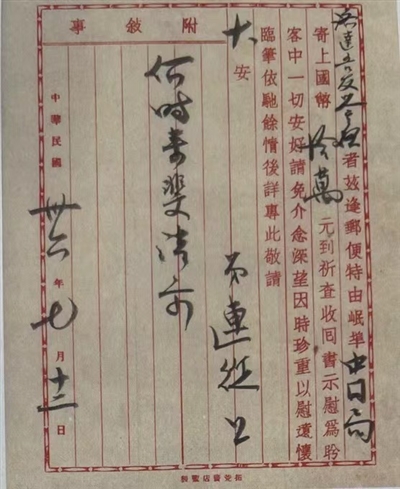 者茲逢郵便特由岷埠
寄上國幣拾萬元到祈查收回書示慰為盼
客中一切安好請免介念深望因時珍重以慰遠懷
臨筆依馳餘情後詳專此敬請
大安
弟連從上
附敘事
何時
中華民國卅六年七月十二日